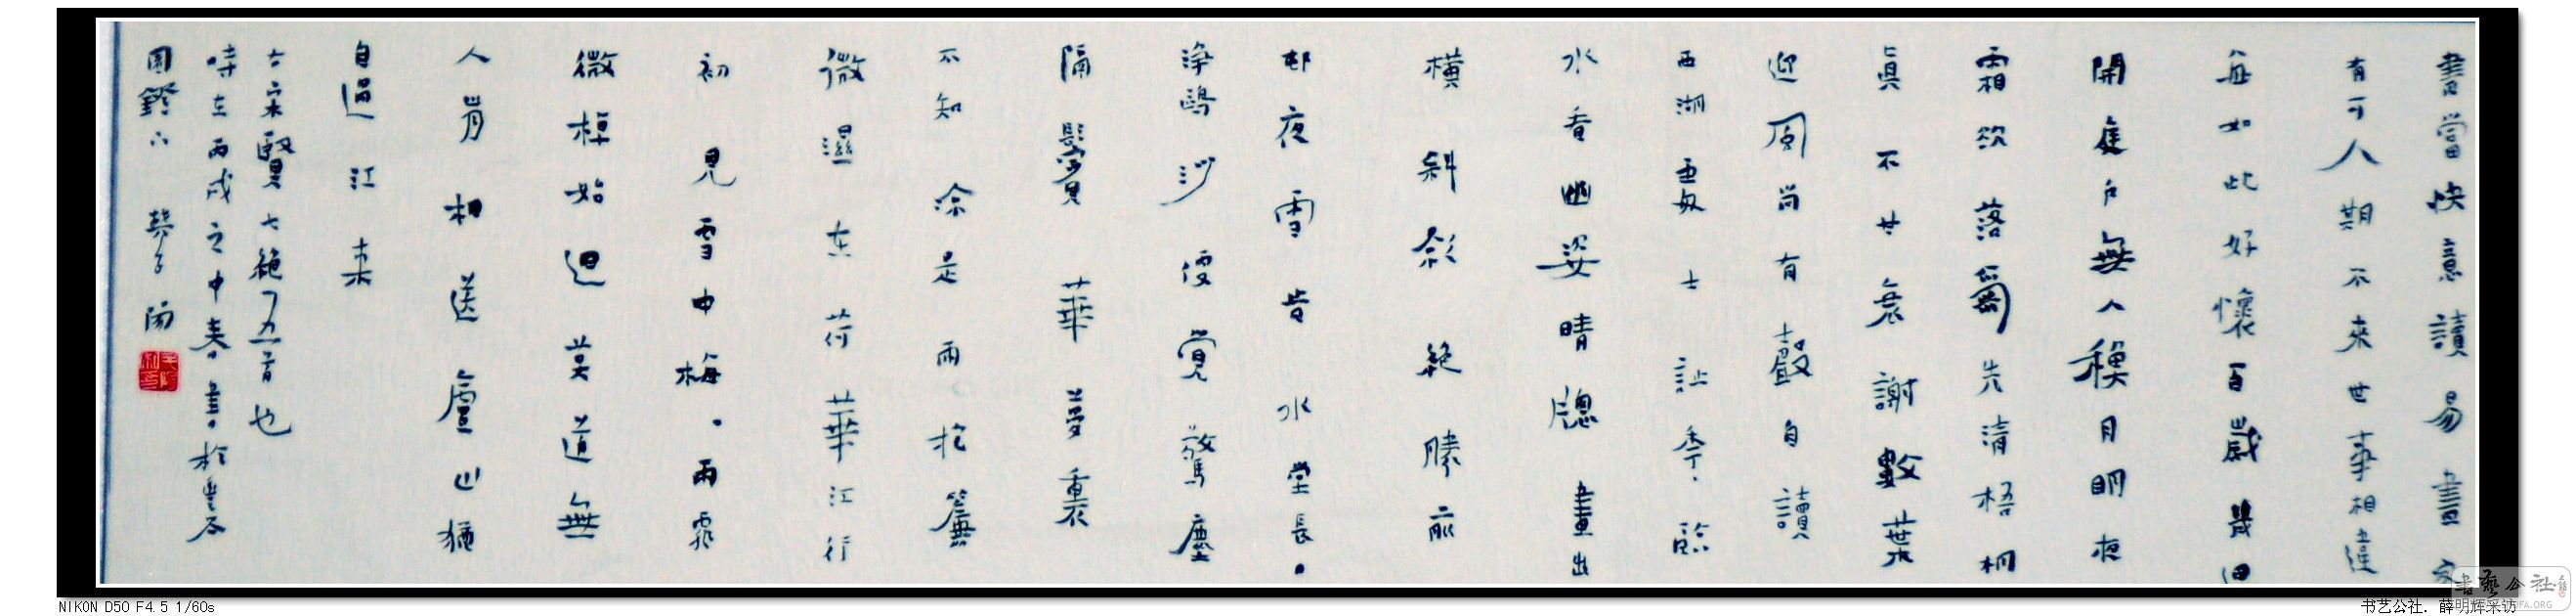 書當快意讀易盡
有可人期不來世事相違
每如此好懷百歲幾回
開庭戶無人穐月明夜
霜欲落氣先清梧桐
真不甘衰謝數葉
迎風尚有聲自讀
西湖處士詩季〻臨
水看幽姿晴窗畫出
橫斜影絕勝前
邨夜雪旹水堂長〻
淨鷗沙便覺驚塵
隔鬢華夢裏
不知涼是雨捲簾
微濕在荷華江行
初見雪中梅〻雨霏
微棹始迴莫道無
人肯相送廬山猶
自過江来
古宋賢七絕五首也
時在丙戌之中春書於
NIKON D50 F4.5 1/60s
书艺公社. 薛明辉采访